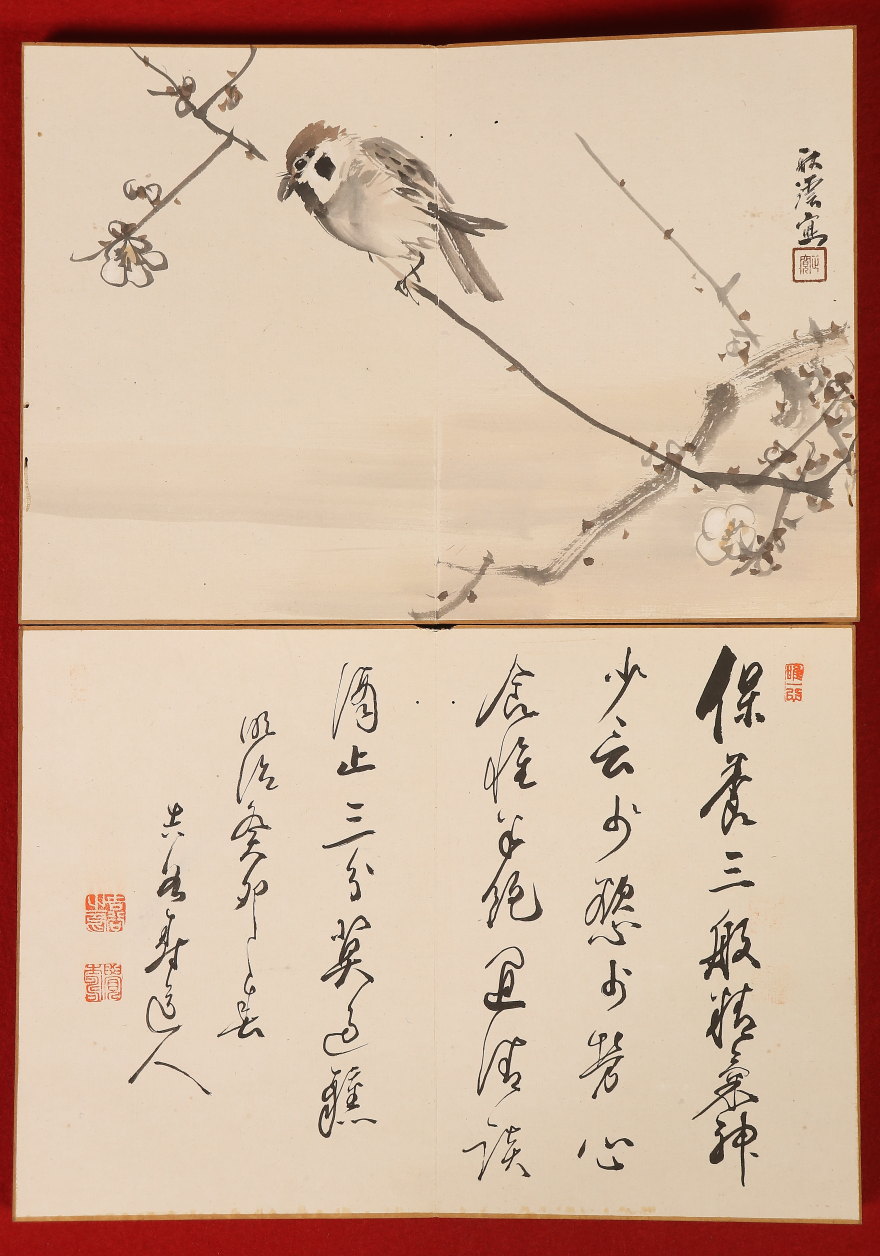 秋澐寫
保養三般精氣神
少言少慾少勞心
食惟半飽宜清淡
酒止三分莫過醺
明治癸卯春
道人